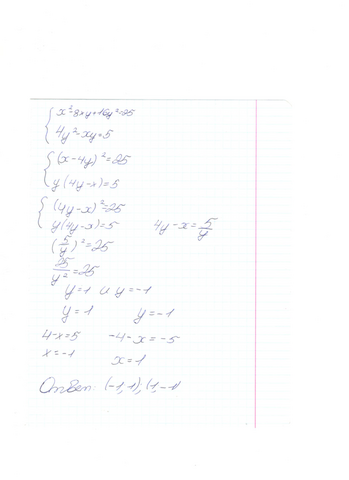 x²-8xy+16y²=25
4y²-xy=5
(x-4y)²=25
y(4y-x)=5
(4y-x)²=25
y(4y-x)=5 4y-x=5/y
(5/y)²=25
25/y²=25
y=1 и y=-1
y=1 y=-1
4-x=5 -4-x=-5
x=-1 x=1
Ответ: (-1,1),(1,-1)